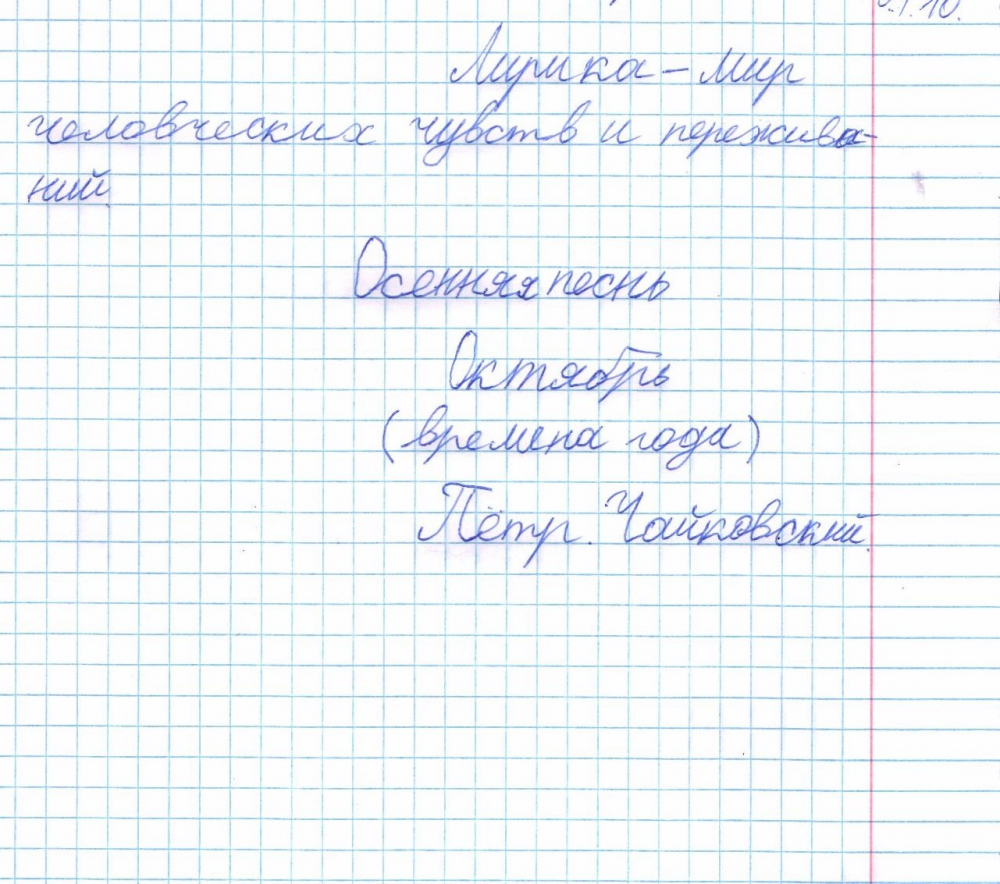 Лирика – мир
человческих чувств и пережива-
ний.
Осенняя песнь
Октябрь
(времена года)
Пётр. Чайковский.